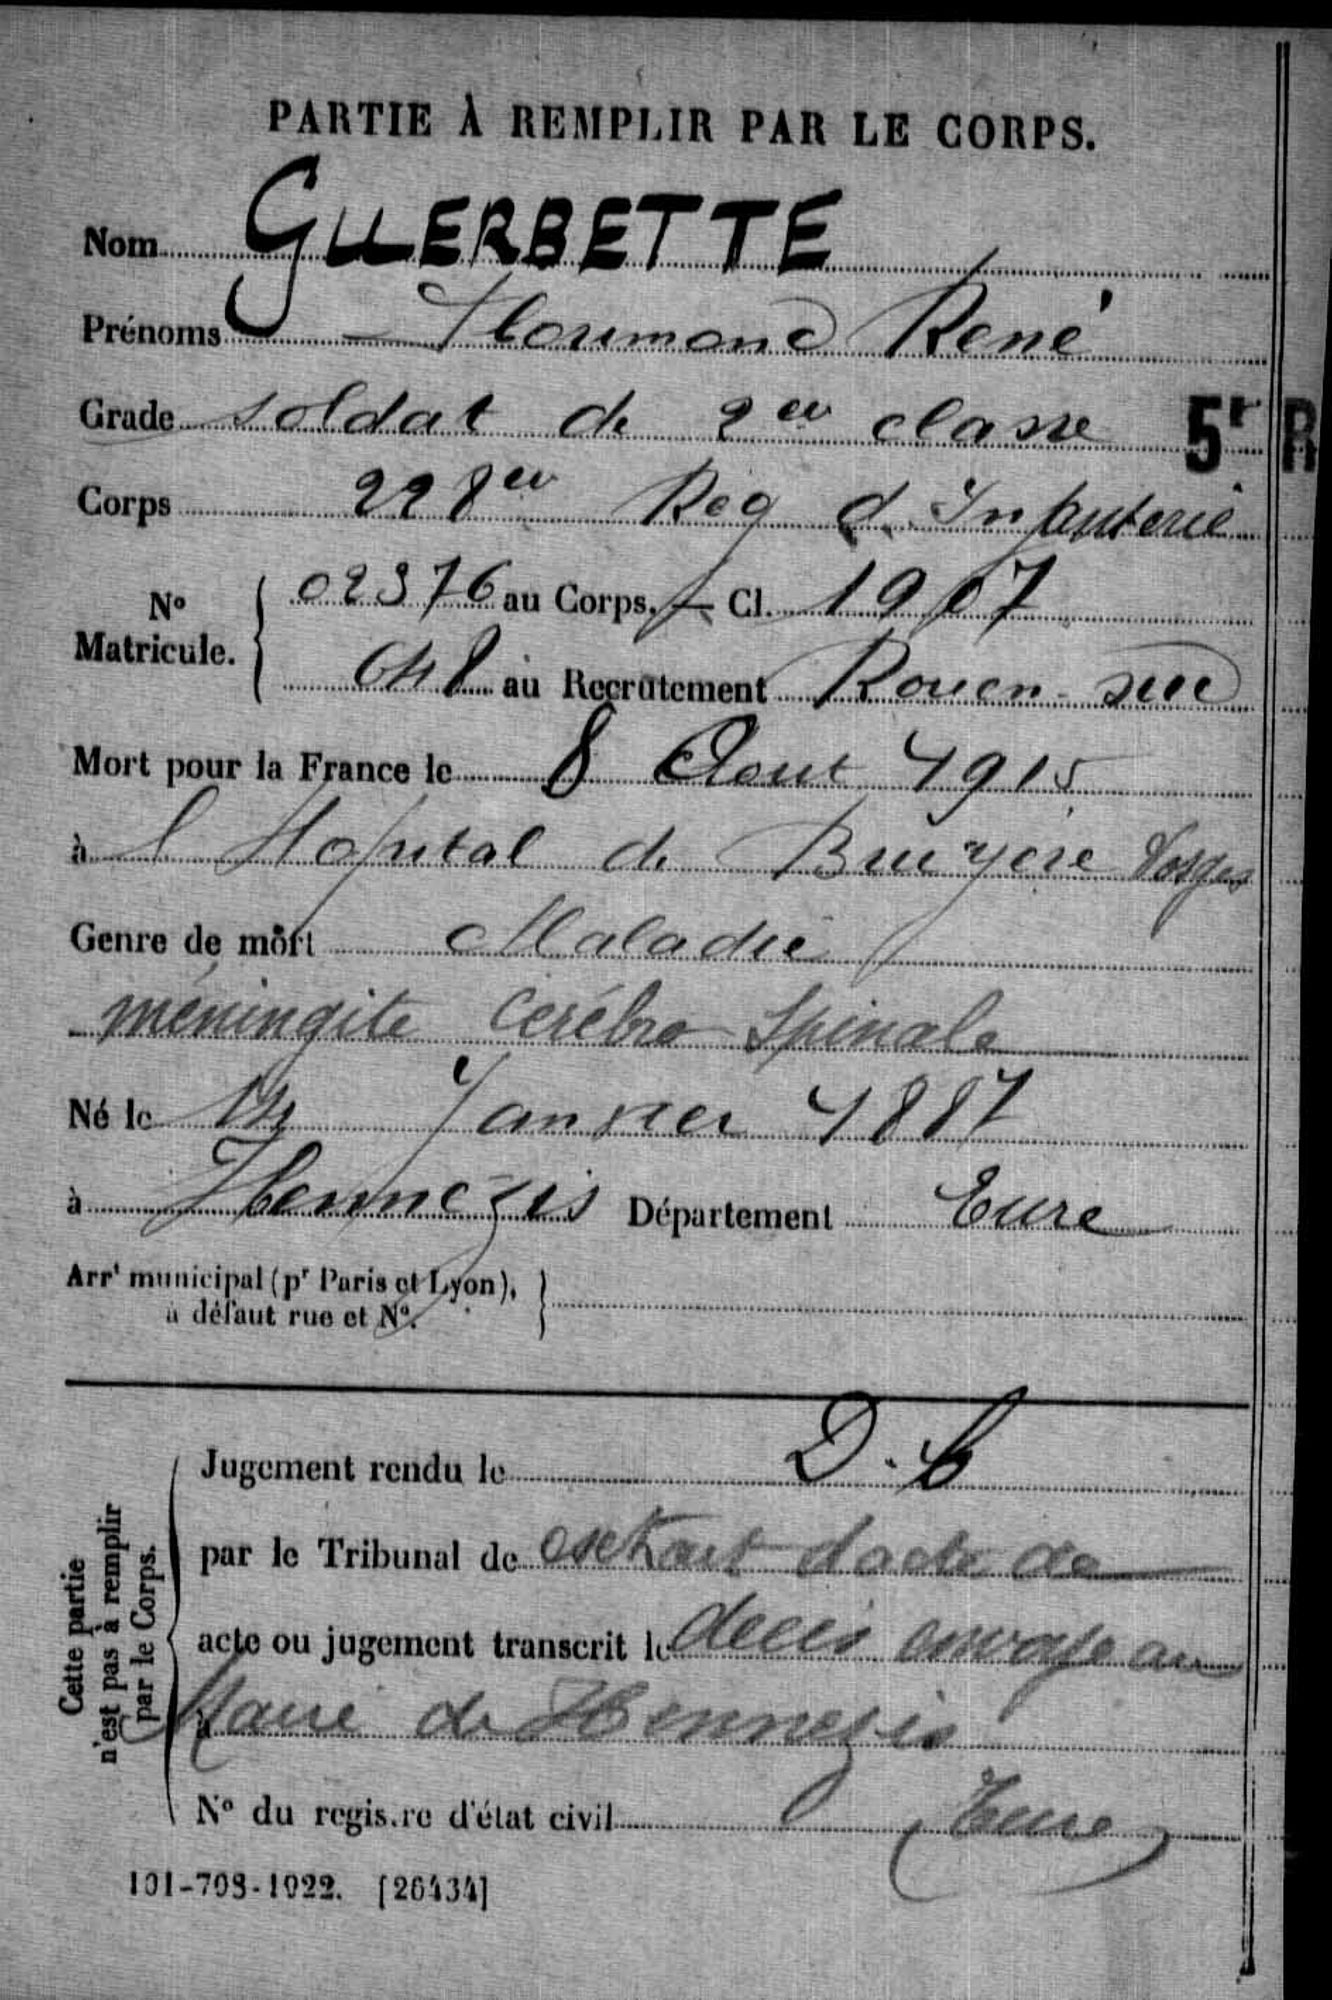 PARTIE À REMPLIR PAR LE CORPS.
Nom GUERBETTE
Prénoms Florimond René
Grade soldat de 2eu classe 5r R
Corps 228eu Reg d'Infanterie
No Matricule. { 02376 au Corps. — Cl. 1907
648 au Recrutement Rouen-sud
Mort pour la France le 8 Aout 1915
à l'Hopital de Bruyère Vosges
Genre de mort Maladie
méningite cérébro spinale
Né le 14 Janvier 1887
à Hennezis Département Eure
Arrt municipal (pr Paris et Lyon),
à défaut rue et No. }
Cette partie
n'est pas à remplir
par le Corps.
Jugement rendu le D.C
par le Tribunal de extrait d'acte de
acte ou jugement transcrit le décès envoyé au
à Maire de Hennezis
No du registre d'état civil (Eure)
101-708-1922. [26434]